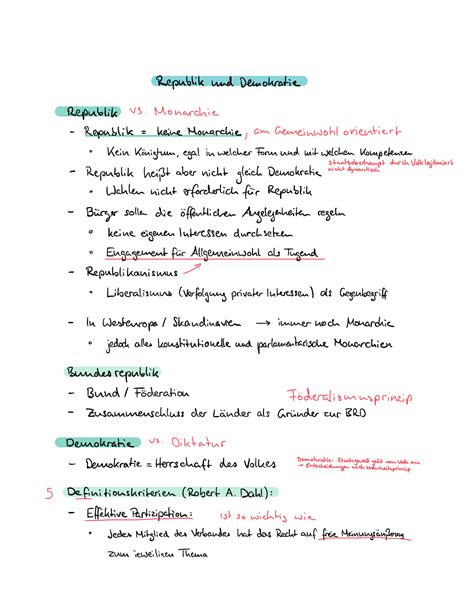 Republik und Demokratie
Republik vs. Monarchie
- Republik = keine Monarchie, am Gemeinwohl orientiert
• Kein Königtum, egal in welcher Form und mit welchen Kompetenzen
Staatsoberhaupt durch Volk legitimiert
nicht dynastisch
- Republik heißt aber nicht gleich Demokratie
• Wahlen nicht erforderlich für Republik
- Bürger sollen die öffentlichen Angelegenheiten regeln
• keine eigenen Interessen durchsetzen
• Engagement für Allgemeinwohl als Tugend
- Republikanismus
• Liberalismus (Verfolgung privater Interessen) als Gegenbegriff
- In Westeuropa / Skandinavien → immer noch Monarchie
• jedoch alles konstitutionelle und parlamentarische Monarchien
Bundesrepublik
- Bund / Föderation Föderalismusprinzip
- Zusammenschluss der Länder als Gründer zur BRD
Demokratie vs. Diktatur
- Demokratie = Herrschaft des Volkes
Demokratie: Staatsgewalt geht vom Volk aus
→ Entscheidungen nach Mehrheitsprinzip
5 Definitionskriterien (Robert A. Dahl):
- Effektive Partizipation: ist so wichtig wie
• Jedes Mitglied des Verbandes hat das Recht auf freie Meinungsäußerung
zum jeweiligen Thema